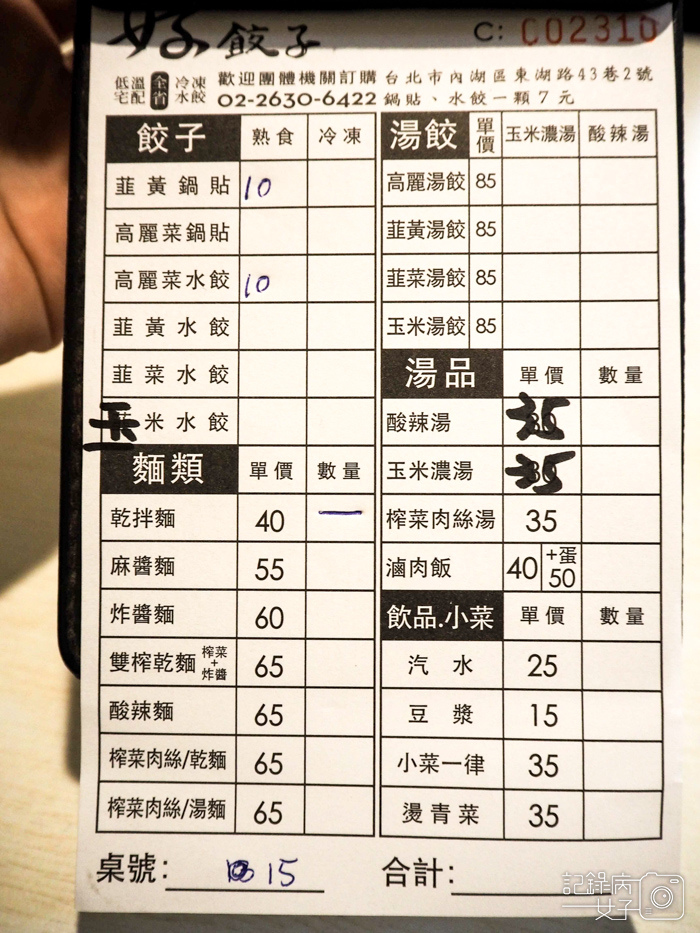 好餃子 C: 002310
低溫宅配 全省 冷凍水餃 歡迎團體機關訂購 台北市內湖區東湖路43巷2號
02-2630-6422 鍋貼、水餃一顆7元
餃子 熟食 冷凍
韮黃鍋貼 10
高麗菜鍋貼
高麗菜水餃 10
韮黃水餃
韮菜水餃
玉米水餃
麵類 單價 數量
乾拌麵 40 一
麻醬麵 55
炸醬麵 60
雙榨乾麵 榨菜+炸醬 65
酸辣麵 65
榨菜肉絲/乾麵 65
榨菜肉絲/湯麵 65
湯餃 單價 玉米濃湯 酸辣湯
高麗湯餃 85
韮黃湯餃 85
韮菜湯餃 85
玉米湯餃 85
湯品 單價 數量
酸辣湯 35
玉米濃湯 35
榨菜肉絲湯 35
滷肉飯 40 +蛋 50
飲品.小菜 單價 數量
汽水 25
豆漿 15
小菜一律 35
燙青菜 35
桌號: 15 合計:
記錄病女子